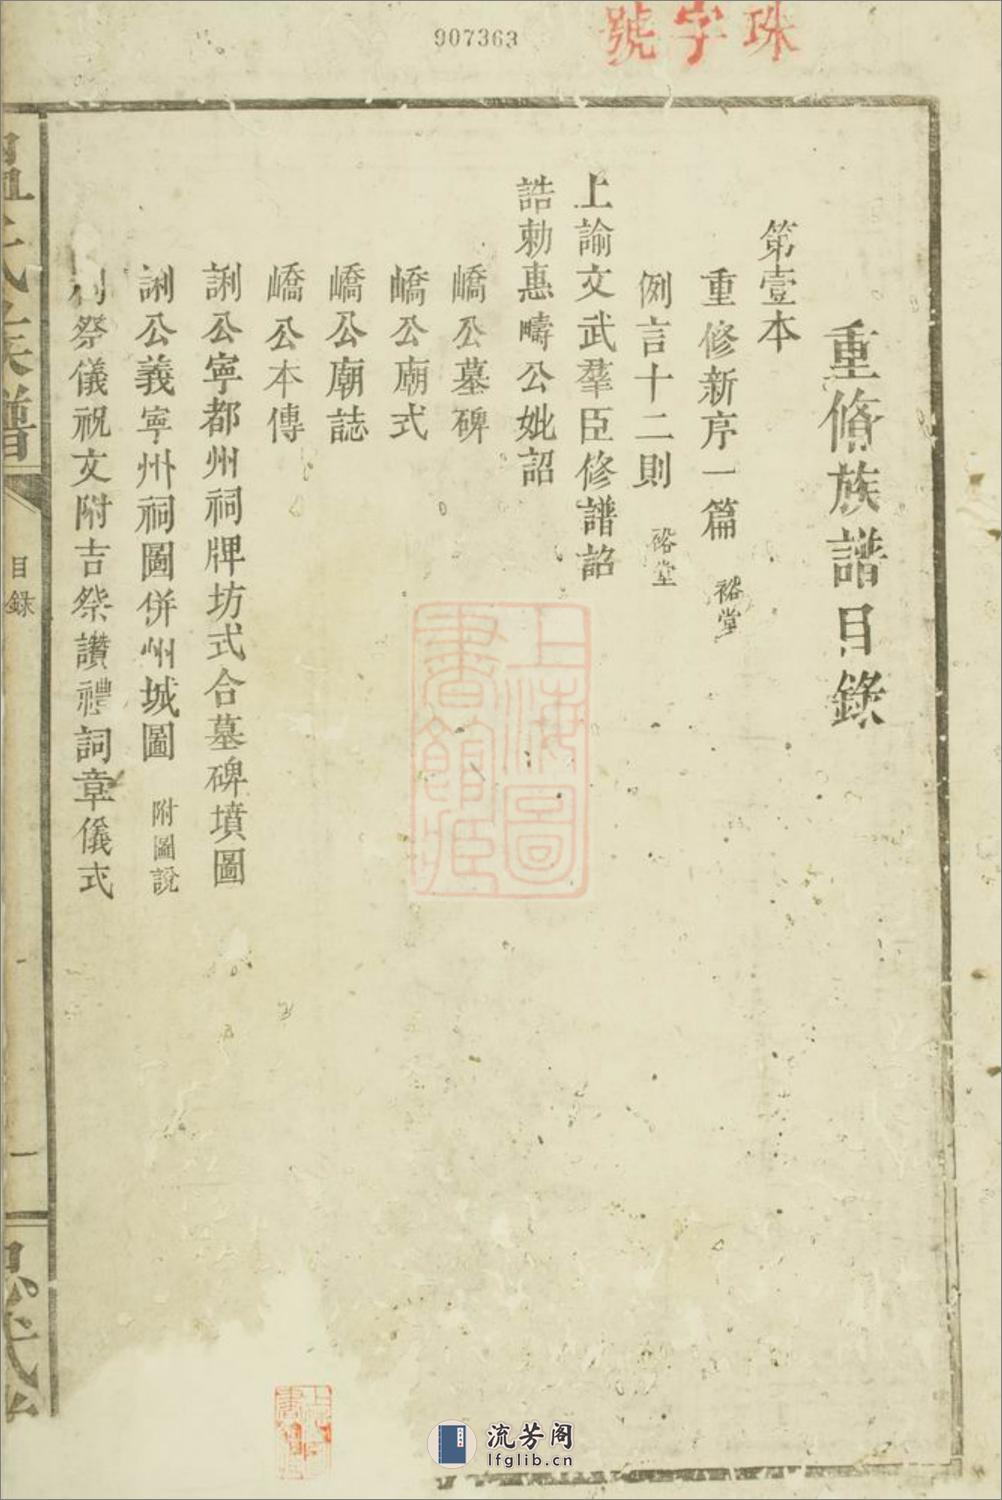 907363
珠字號
重脩族譜目錄
第壹本
重修新序一篇 裕堂
例言十二則 裕堂
上諭文武羣臣修譜詔
誥勅惠疇公妣詔
嶠公墓碑
嶠公廟式
嶠公廟誌
嶠公本傳
誗公寧都州祠牌坊式合墓碑墳圖
誗公義寧州祠圖併州城圖 附圖說
祭儀祝文附吉祭讚禮詞章儀式
氏族譜
目録
一
上海圖書館藏
流芳阁
lfglib.cn